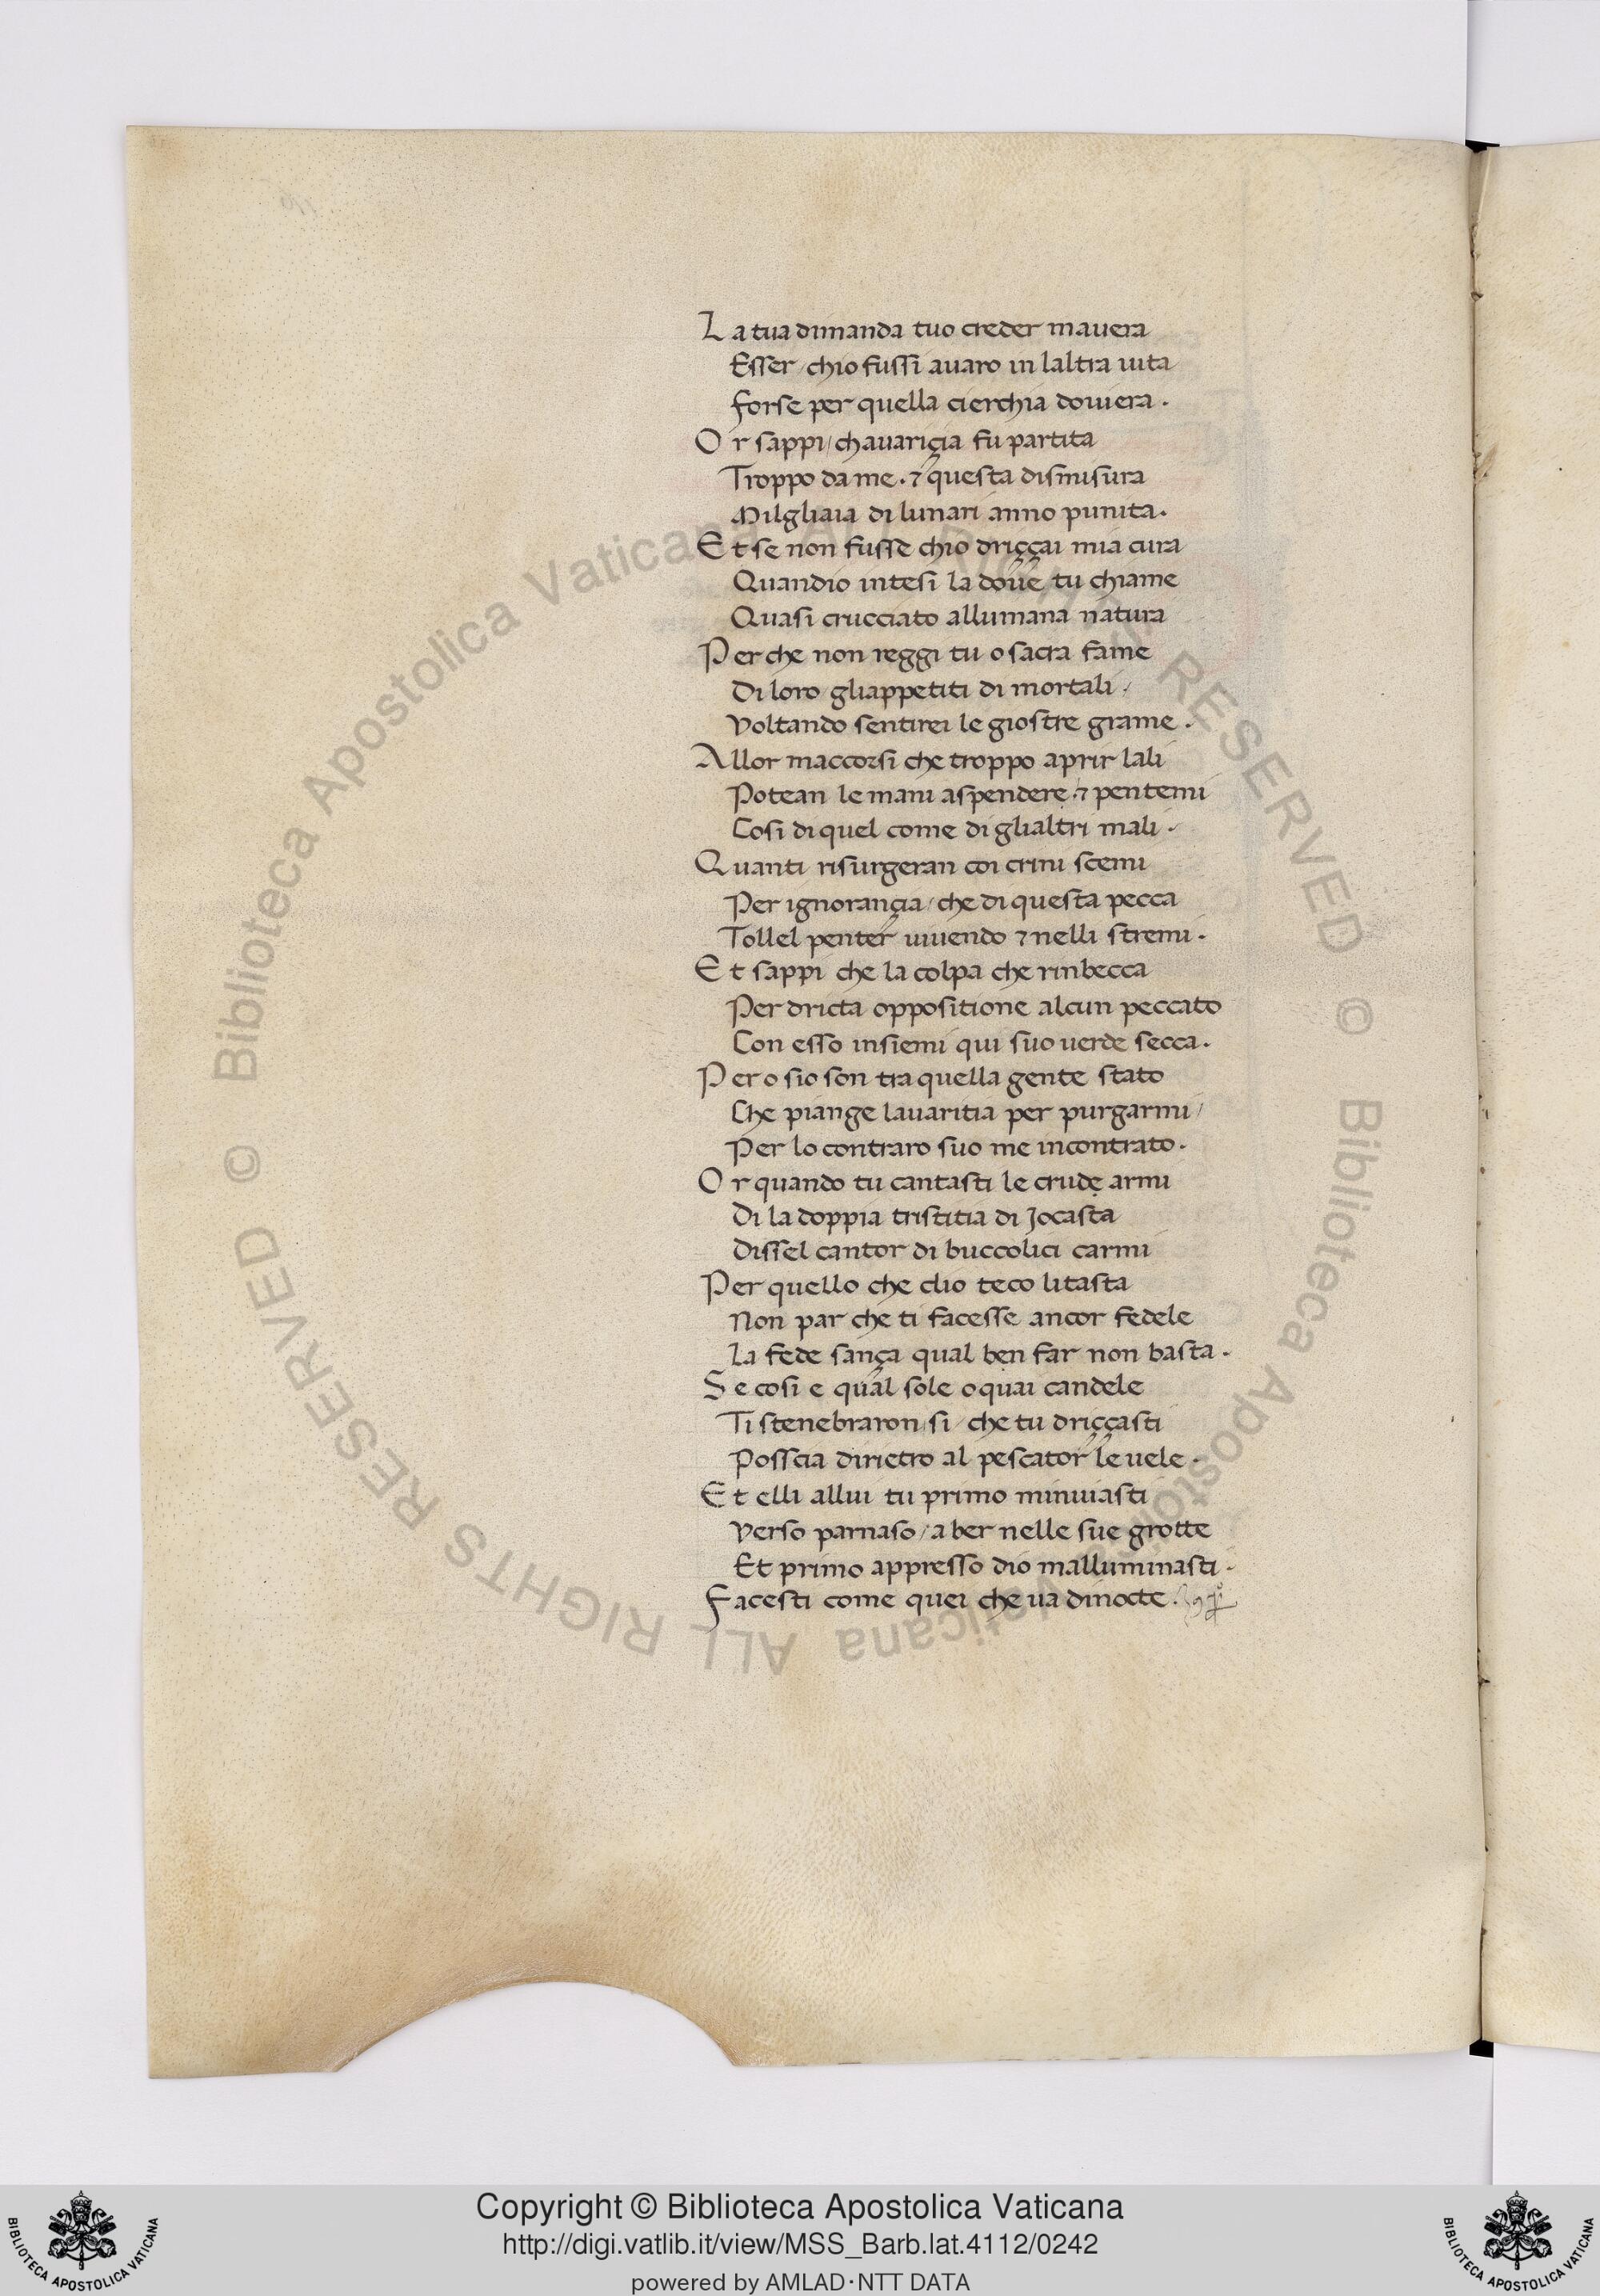 La tua dimanda tuo creder mauera
Esser / chio fussi auaro in laltra uita
forse per quella cierchia douiera .
Or sappi / chauariçia fu partita
Troppo da me . ⁊ questa dismisura
Milgliaia di lunari anno punita .
Et se non fusse chio driççai mia cura
Quandio intesi la doue tu chiame
Quasi crucciato allumana natura
Perche non reggi tu o sacra fame
Di loro gliappetiti di mortali /
Voltando sentirei le giostre grame .
Allor maccorsi che troppo aprir lali
Potean le mani aspendere ⁊ pentemi
Cosi di quel come di glialtri mali .
Quanti risurgeran coi crini scemi
Per ignorançia / che di questa pecca
Tollel penter uiuendo ⁊ nelli stremi .
Et sappi che la colpa che rinbecca
Per dricta oppositione alcun peccato
Con esso insiemi qui suo uerde secca .
Pero sio son tra quella gente stato
Che piange lauaritia per purgarmi /
Per lo contraro suo me incontrato .
Or quando tu cantasti le crude armi
Di la doppia tristitia di Jocasta
Dissel cantor di buccolici carmi
Per quello che clio teco litasta
Non par che ti facesse ancor fedele
La fede sança qual ben far non basta .
Se cosi e qual sole o quai candele
Ti stenebraron / si / che tu driççasti
Posscia dirietro al pescator le uele .
Et elli allui tu primo minuiasti
Verso parnaso / a ber nelle sue grotte
Et primo appresso dio malluminasti .
Facesti come quei che ua dinocte .
© Biblioteca Apostolica Vaticana ALL RIGHTS RESERVED © Biblioteca Apostolica Vaticana ALL RIGHTS RESERVED
Copyright © Biblioteca Apostolica Vaticana
http://digi.vatlib.it/view/MSS_Barb.lat.4112/0242
powered by AMLAD·NTT DATA
BIBLIOTECA APOSTOLICA VATICANA
BIBLIOTECA APOSTOLICA VATICANA